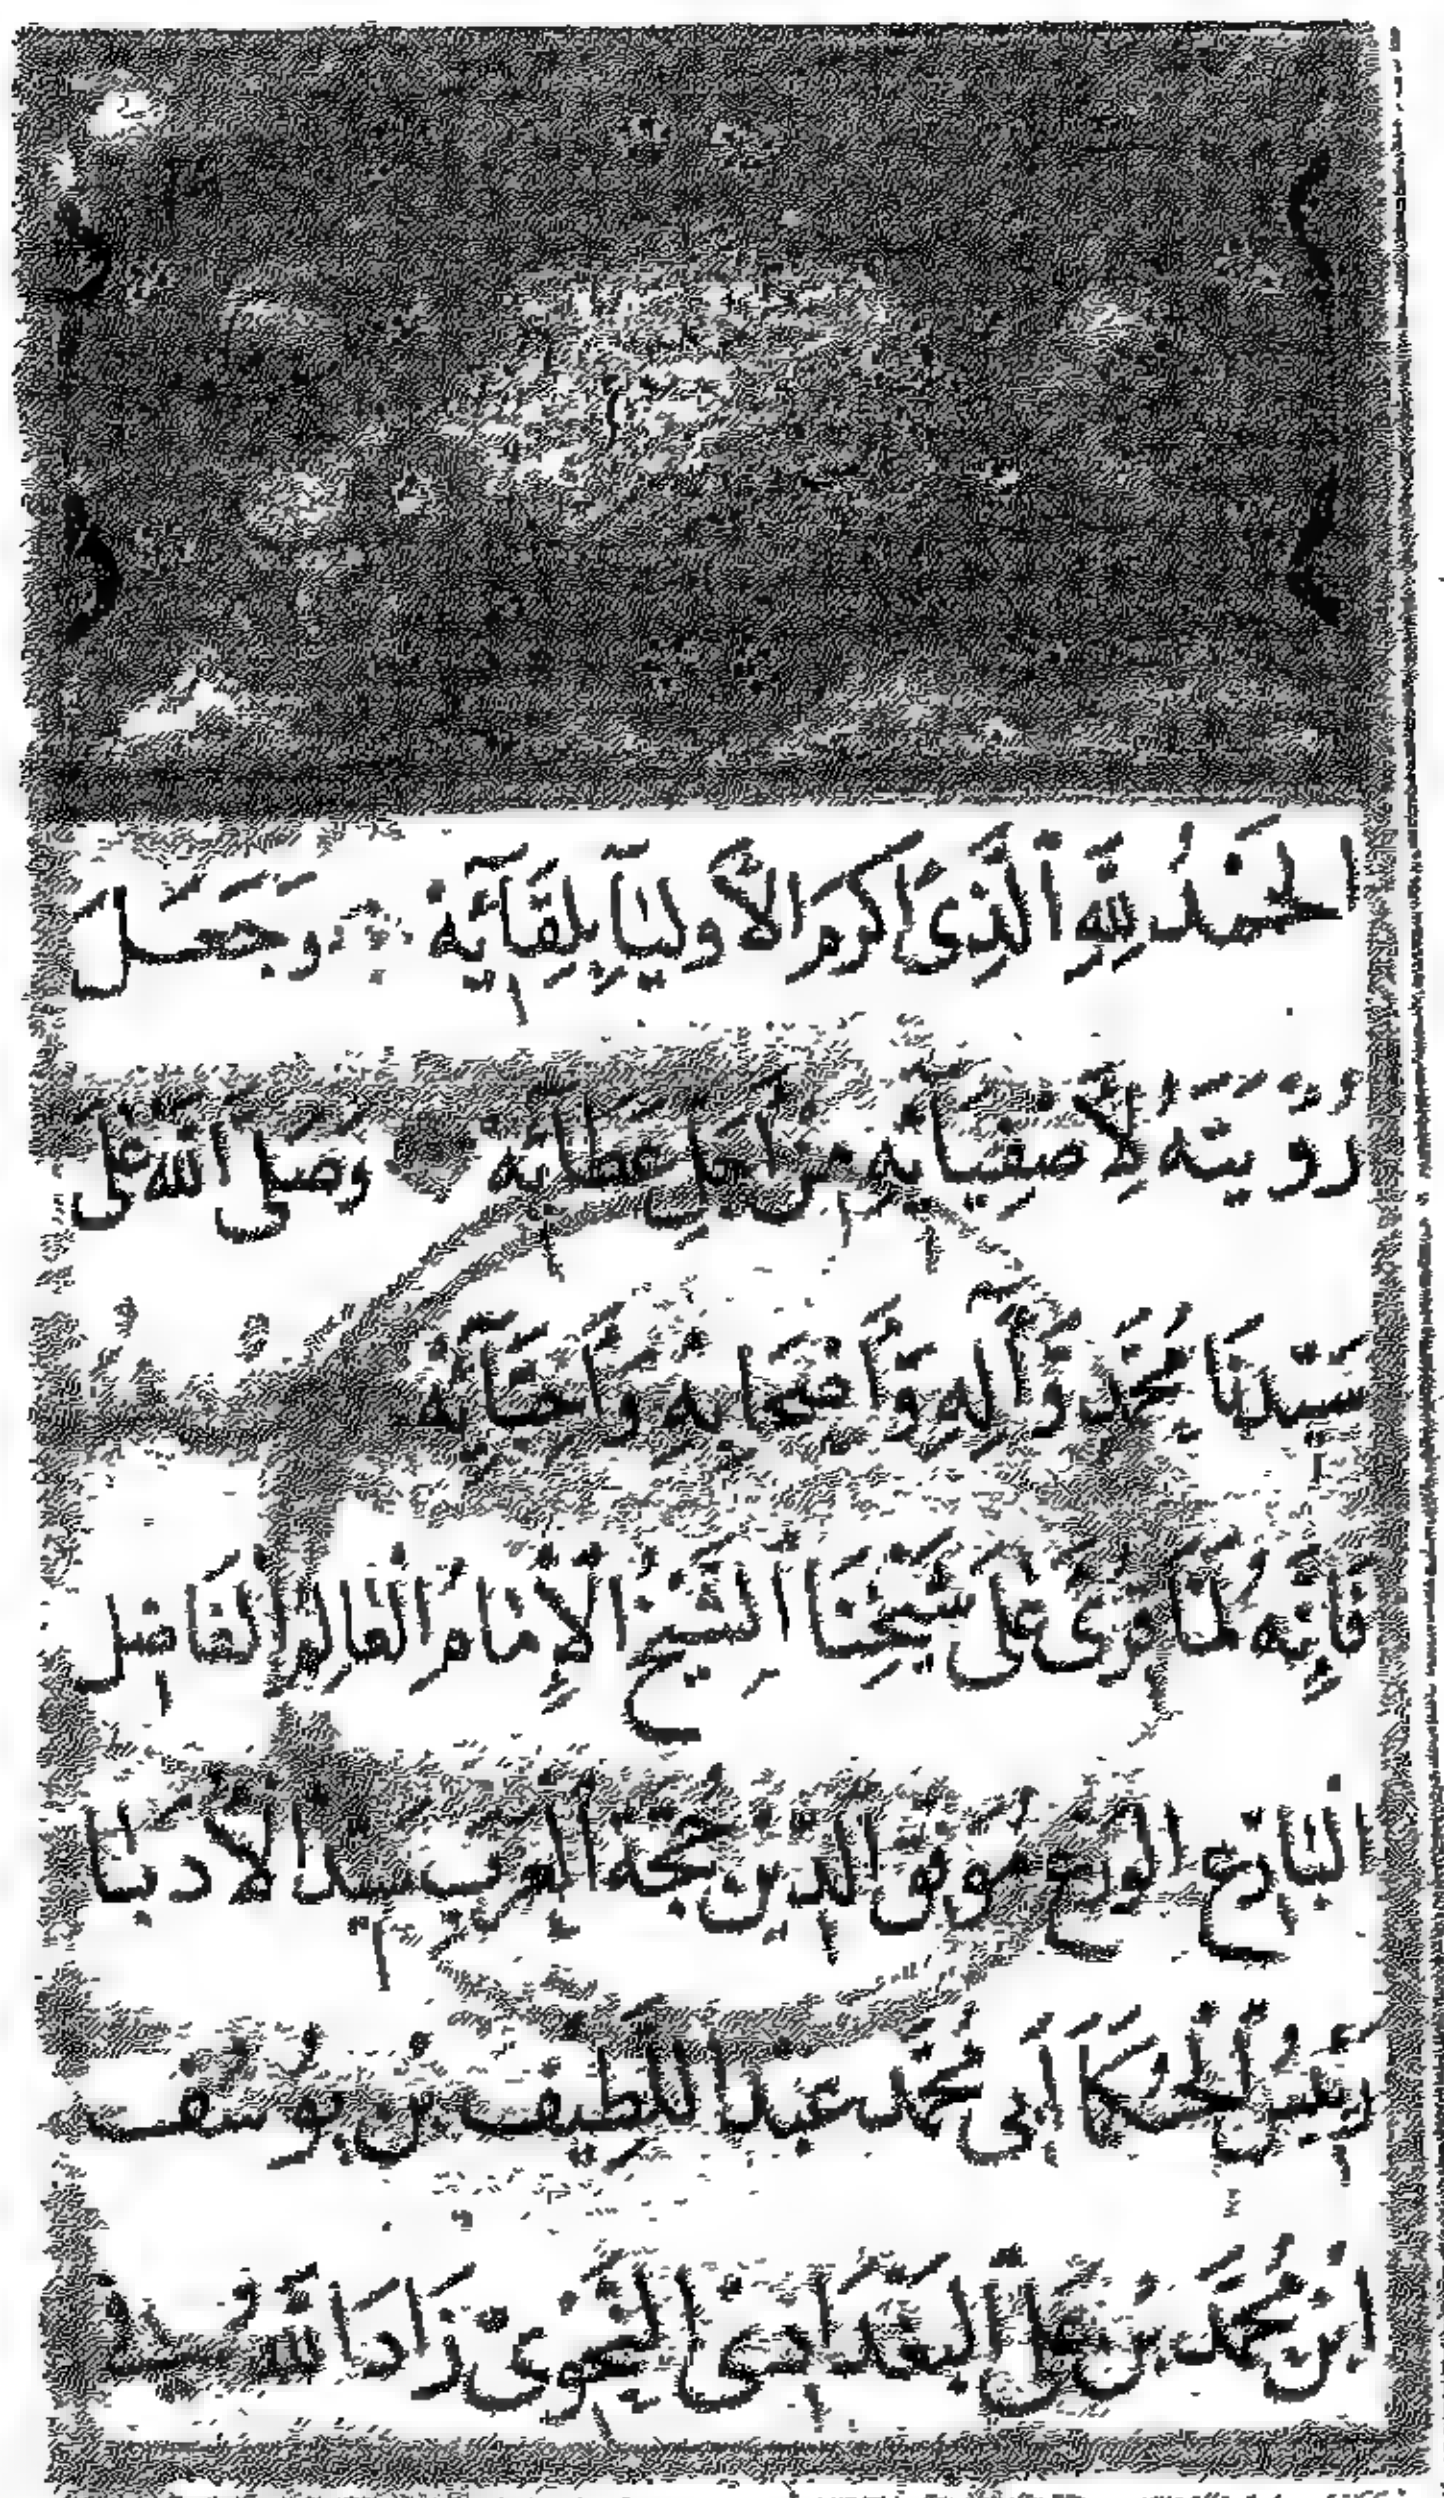 الحَمْدُ لِلَّهِ الَّذِى أَكْرَمَ الأَوْلِيَآءَ بِلِقَآئِهِ وَجَعَلَ
رُؤْيَتَهُ لِأَصْفِيَائِهِ مِنْ أَجَلِّ عَطَائِهِ وَصَلَّى اللهُ عَلَى
سَيِّدِنَا مُحَمَّدٍ وَآلِهِ وَأَصْحَابِهِ وَأَحِبَّآئِهِ
فَإِنَّهُ لَمَّا قُرِئَ عَلَى شَيْخِنَا الشَّيْخِ الإِمَامِ الْعَالِمِ الْفَاضِلِ
الْبَارِعِ الوَرِعِ مُوَفَّقِ الدِّينِ حُجَّةِ العَرَبِ سَيِّدِ الأُدَبَا
رَئِيسِ الْحُكَمَا أَبِى مُحَمَّد عَبْدِ اللَّطِيفِ بْنِ يُوسُفَ
ابْنِ مُحَمَّدِ بْنِ عَلِىٍّ الْبَغْدَادِىِّ النَّحْوِىِّ زَادَ اللهُ